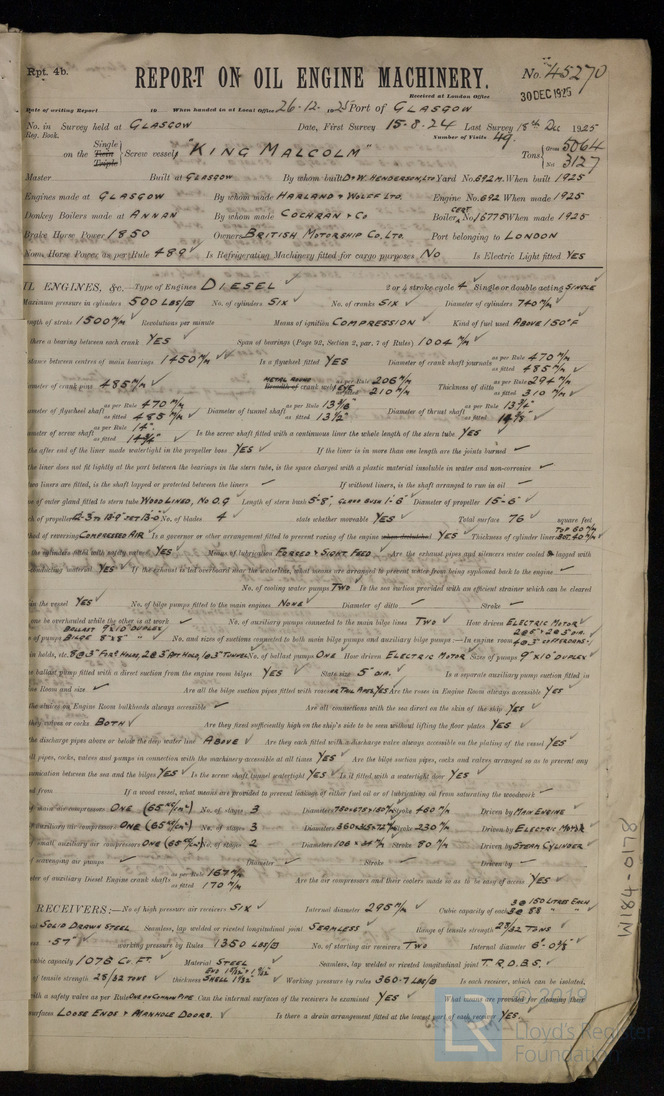 Rpt. 4b.
REPORT ON OIL ENGINE MACHINERY.
No. 45270
Received at London Office
30 DEC 1925
Date of writing Report 19 When handed in at Local Office 26-12-1925 Port of GLASGOW
No. in Survey held at GLASGOW Date, First Survey 15-8-24 Last Survey 18th Dec 1925
Reg. Book. Number of Visits 49
on the Single Twin Triple Screw vessel "KING MALCOLM" Tons Gross 5064 Net 3127
Master Built at GLASGOW By whom built D & W. HENDERSON, LTD Yard No. 692 M. When built 1925
Engines made at GLASGOW By whom made HARLAND & WOLFF LTD. Engine No. 692 When made 1925
Donkey Boilers made at ANNAN By whom made COCHRAN & CO Boiler CERT No. 16775 When made 1925
Brake Horse Power 1850 Owners BRITISH MOTORSHIP CO. LTD. Port belonging to LONDON
Nom. Horse Power as per Rule 489 Is Refrigerating Machinery fitted for cargo purposes NO Is Electric Light fitted YES
IL ENGINES, &c. Type of Engines DIESEL 2 or 4 stroke cycle 4 Single or double acting SINGLE
Maximum pressure in cylinders 500 LBS/□" No. of cylinders SIX No. of cranks SIX Diameter of cylinders 740 m/m
ength of stroke 1500 m/m Revolutions per minute Means of ignition COMPRESSION Kind of fuel used ABOVE 150°F
there a bearing between each crank YES Span of bearings (Page 92, Section 2, par. 7 of Rules) 1004 m/m
stance between centres of main bearings 1450 m/m Is a flywheel fitted YES Diameter of crank shaft journals as per Rule 470 m/m as fitted 485 m/m
ameter of crank pins 485 m/m METAL ROUND EYE as per Rule 206 m/m as fitted 210 m/m Thickness of ditto as per Rule 294 m/m as fitted 310 m/m
ameter of flywheel shaft as per Rule 470 m/m as fitted 485 m/m Diameter of tunnel shaft as fitted 13 1/2" Diameter of thrust shaft as per Rule 13 3/4"
ameter of screw shaft as per Rule 14" as fitted 14 3/4" Is the screw shaft fitted with a continuous liner the whole length of the stern tube YES
the after end of the liner made watertight in the propeller boss YES If the liner is in more than one length are the joints burned
the liner does not fit tightly at the part between the bearings in the stern tube, is the space charged with a plastic material insoluble in water and non-corrosive
two liners are fitted, is the shaft lapped or protected between the liners If without liners, is the shaft arranged to run in oil
pe of outer gland fitted to stern tube WOOD LINED, NO O.G Length of stern bush 5'-8", GLAND BUSH 1'-6" Diameter of propeller 15'-6"
ch of propeller No. of blades 4 state whether moveable YES Total surface 76 square feet
hod of reversing COMPRESSED AIR Is a governor or other arrangement fitted to prevent racing of the engine YES Thickness of cylinder liner TOP 60 m/m BOT. 40 m/m
the cylinders fitted with safety valves YES Means of lubrication FORCED & SIGHT FEED Are the exhaust pipes and silencers water cooled & lagged with
conducting material YES If the exhaust is led overboard near the waterline, what means are arranged to prevent water from being syphoned back to the engine
No. of cooling water pumps TWO Is the sea suction provided with an efficient strainer which can be cleared
in the vessel YES No. of bilge pumps fitted to the main engines NONE Diameter of ditto Stroke
one be overhauled while the other is at work No. of auxiliary pumps connected to the main bilge lines TWO How driven ELECTRIC MOTOR
of pumps BALLAST 9"x10" DUPLEX BILGE 8"x8" " No. and sizes of suctions connected to both main bilge pumps and auxiliary bilge pumps:—In engine room
in holds, etc. 8 @ 3" FORE HOLDS, 2 @ 3" AFT HOLD, 1 @ 3" TUNNEL No. of ballast pumps ONE How driven ELECTRIC MOTOR Sizes of pumps 9"x10" DUPLEX
e ballast pump fitted with a direct suction from the engine room bilges YES State size 5" DIA. Is a separate auxiliary pump suction fitted in
ne Room and size. Are all the bilge suction pipes fitted with roses OR TAIL PIPES, YES Are the roses in Engine Room always accessible YES
the sluices on Engine Room bulkheads always accessible Are all connections with the sea direct on the skin of the ship YES
they valves or cocks BOTH Are they fixed sufficiently high on the ship's side to be seen without lifting the floor plates YES
the discharge pipes above or below the deep water line ABOVE Are they each fitted with a discharge valve always accessible on the plating of the vessel YES
all pipes, cocks, valves and pumps in connection with the machinery accessible at all times YES Are the bilge suction pipes, cocks and valves arranged so as to prevent any
munication between the sea and the bilges YES Is the screw shaft tunnel watertight YES Is it fitted with a watertight door YES
ed from If a wood vessel, what means are provided to prevent leakage of either fuel oil or of lubricating oil from saturating the woodwork
of main air compressors ONE (65 KG/CM²) No. of stages 3 Diameters Stroke 460 m/m Driven by MAIN ENGINE
auxiliary air compressors ONE (65 KG/CM²) No. of stages 3 Diameters Stroke 230 m/m Driven by ELECTRIC MOTOR
small auxiliary air compressors ONE (65 KG/CM²) No. of stages 2 Diameters Stroke 80 m/m Driven by STEAM CYLINDER
f scavenging air pumps Diameter Stroke Driven by
eter of auxiliary Diesel Engine crank shafts as per Rule 167 m/m as fitted 170 m/m Are the air compressors and their coolers made so as to be easy of access YES
RECEIVERS:—No. of high pressure air receivers SIX Internal diameter 295 m/m Cubic capacity of each 3 @ 150 LITRES EACH 3 @ 88 " "
al SOLID DRAWN STEEL Seamless, lap welded or riveted longitudinal joint SEAMLESS Range of tensile strength 28/32 TONS
ess .57" working pressure by Rules 1350 LBS/□" No. of starting air receivers TWO Internal diameter
cubic capacity 1078 CU. FT. Material STEEL Seamless, lap welded or riveted longitudinal joint T.R.D.B.S.
of tensile strength 28/32 TONS thickness Working pressure by rules 360.7 LBS/□" Is each receiver, which can be isolated,
with a safety valve as per Rule ONE ON COMMON PIPE Can the internal surfaces of the receivers be examined YES What means are provided for cleaning their
surfaces LOOSE ENDS & MANHOLE DOORS. Is there a drain arrangement fitted at the lowest part of each receiver YES.
W184-0178
© 2019
Lloyd's Register
Foundation